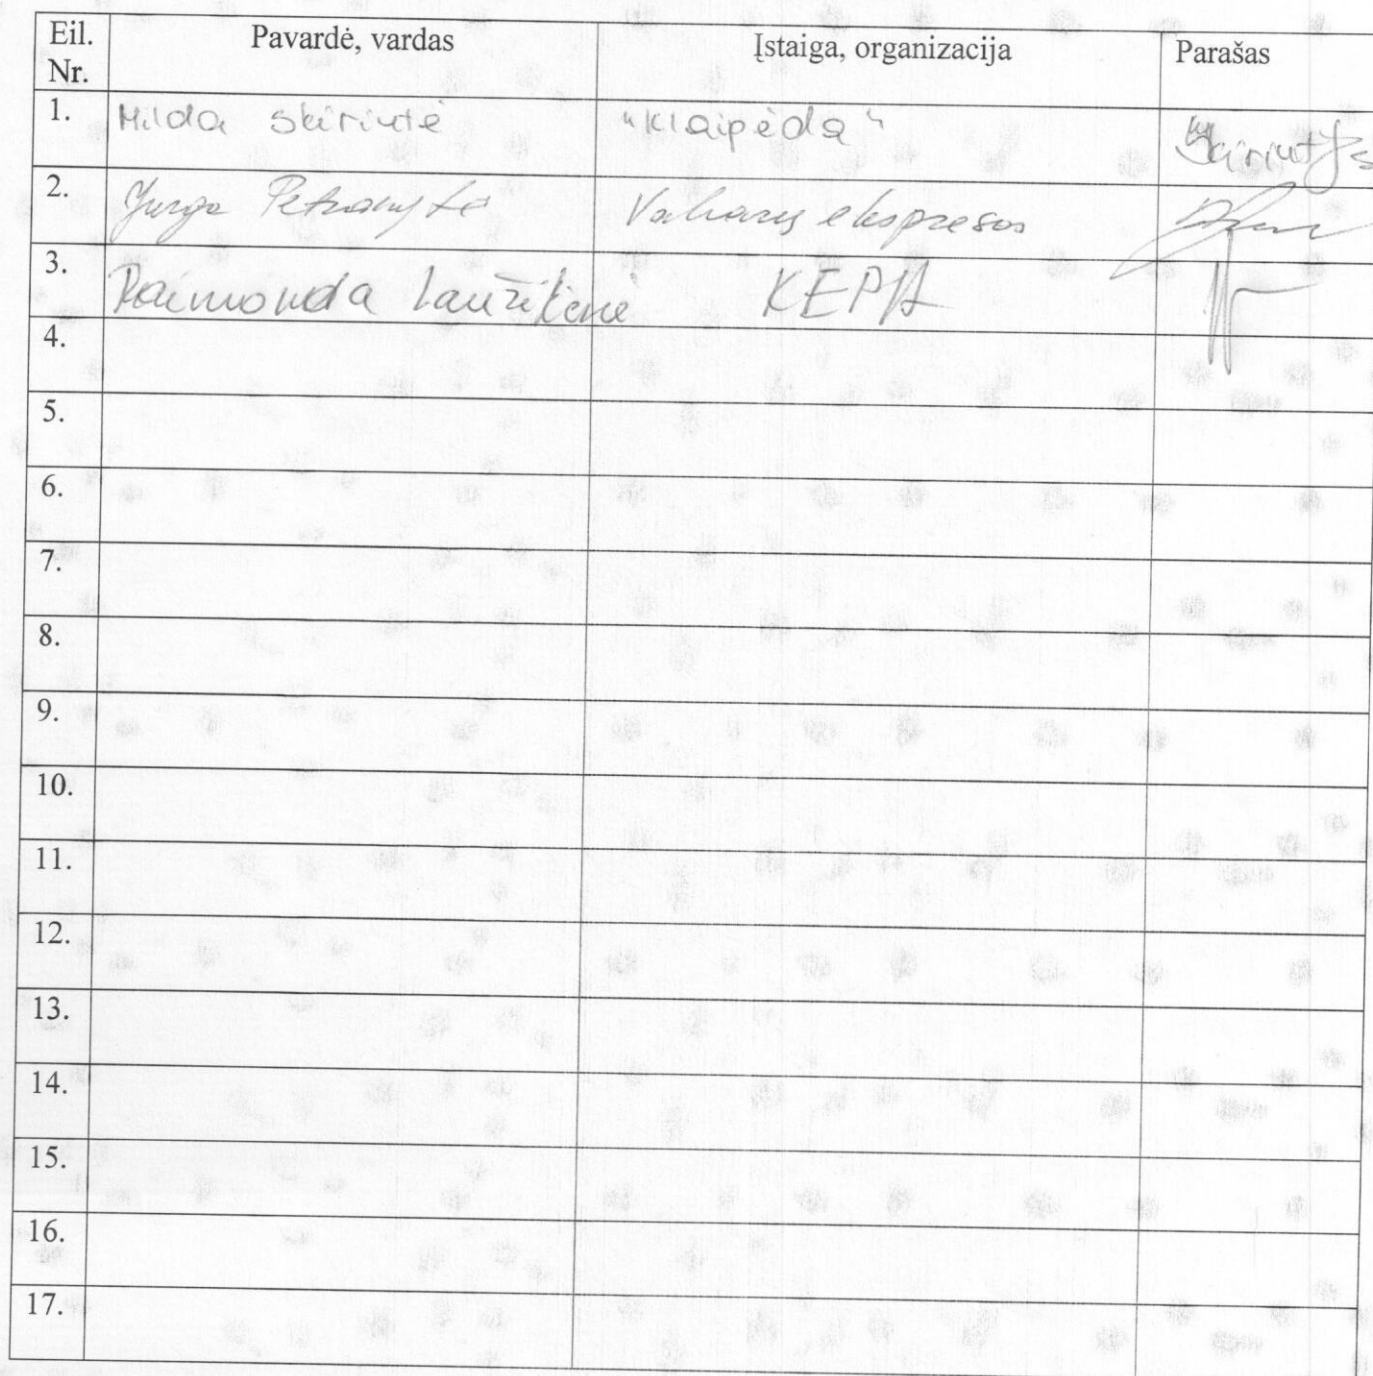 Eil. Nr. Pavardė, vardas Įstaiga, organizacija Parašas
1. Milda Skirutė "Klaipėda"
2. Jurga Petronytė Vakarų ekspresas
3. Raimonda Laužikienė KEPA
4.
5.
6.
7.
8.
9.
10.
11.
12.
13.
14.
15.
16.
17.